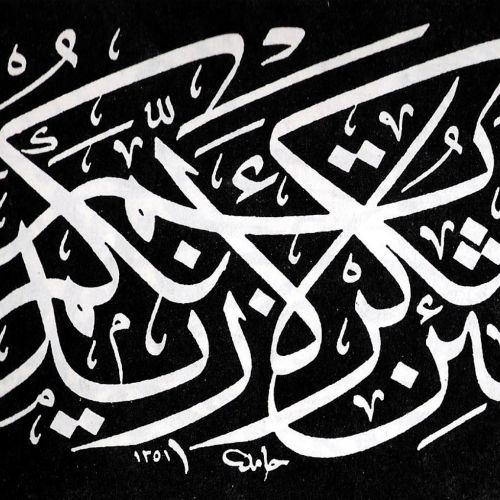 لئن شكرتم لأزيدنكم
حامد ١٣٥١